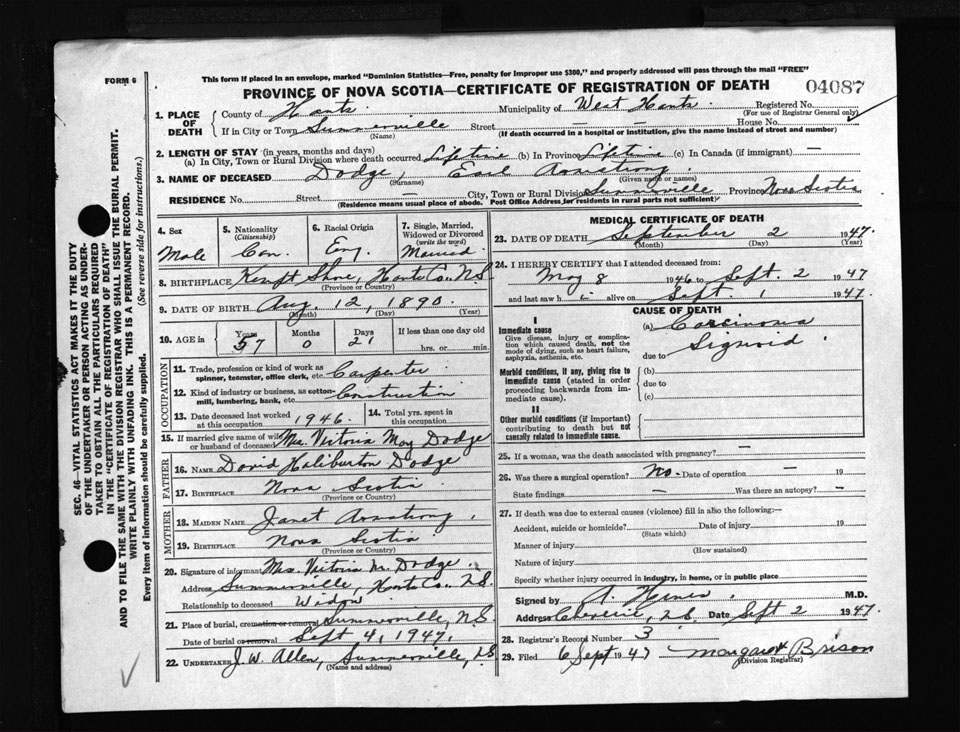 FORM 6
This form if placed in an envelope, marked "Dominion Statistics—Free, penalty for improper use $300," and properly addressed will pass through the mail "FREE"
PROVINCE OF NOVA SCOTIA—CERTIFICATE OF REGISTRATION OF DEATH
04087
SEC. 46—VITAL STATISTICS ACT MAKES IT THE DUTY
OF THE UNDERTAKER OR PERSON ACTING AS UNDER-
TAKER TO OBTAIN ALL THE PARTICULARS REQUIRED
IN THE "CERTIFICATE OF REGISTRATION OF DEATH"
AND TO FILE THE SAME WITH THE DIVISION REGISTRAR WHO SHALL ISSUE THE BURIAL PERMIT.
WRITE PLAINLY WITH UNFADING INK. THIS IS A PERMANENT RECORD.
Every item of information should be carefully supplied. (See reverse side for instructions.)
1. PLACE OF DEATH
County of Hants Municipality of West Hants Registered No.
(For use of Registrar General only)
If in City or Town Summerville Street — — House No.
(Name) (If death occurred in a hospital or institution, give the name instead of street and number)
2. LENGTH OF STAY (in years, months and days)
(a) In City, Town or Rural Division where death occurred Lifetime (b) In Province Lifetime (c) In Canada (if immigrant) —
3. NAME OF DECEASED Dodge, Earl Armstrong
(Surname) (Given name or names)
RESIDENCE No. — Street — City, Town or Rural Division Summerville Province Nova Scotia
(Residence means usual place of abode. Post Office Address for residents in rural parts not sufficient)
4. Sex Male
5. Nationality (Citizenship) Can.
6. Racial Origin Eng.
7. Single, Married, Widowed or Divorced (write the word) Married
8. BIRTHPLACE Kempt Shore, Hants Co., N.S.
(Province or Country)
9. DATE OF BIRTH Aug. 12, 1890.
(Month) (Day) (Year)
10. AGE in Years 57 Months 0 Days 21 If less than one day old hrs. or min.
OCCUPATION
11. Trade, profession or kind of work as spinner, teamster, office clerk, etc. Carpenter
12. Kind of industry or business, as cotton-mill, lumbering, bank, etc. Construction
13. Date deceased last worked at this occupation 1946.
14. Total yrs. spent in this occupation
15. If married give name of wife or husband of deceased Mrs. Victoria May Dodge
FATHER
16. NAME David Haliburton Dodge
17. BIRTHPLACE Nova Scotia
(Province or Country)
MOTHER
18. MAIDEN NAME Janet Armstrong
19. BIRTHPLACE Nova Scotia
(Province or Country)
20. Signature of informant Mrs. Victoria M. Dodge
Address Summerville, Hants Co., N.S.
Relationship to deceased Widow
21. Place of burial, cremation or removal Summerville, N.S.
Date of burial or removal Sept 4, 1947.
22. UNDERTAKER J. W. Allen, Summerville, N.S.
(Name and address)
MEDICAL CERTIFICATE OF DEATH
23. DATE OF DEATH September 2 1947.
(Month) (Day) (Year)
24. I HEREBY CERTIFY that I attended deceased from:
May 8 1946 to Sept. 2 1947
and last saw h i alive on Sept. 1 1947.
CAUSE OF DEATH
I
Immediate cause
Give disease, injury or complication which caused death, not the mode of dying, such as heart failure, asphyxia, asthenia, etc.
(a) Carcinoma
due to Sigmoid
Morbid conditions, if any, giving rise to immediate cause (stated in order proceeding backwards from immediate cause).
(b)
due to
(c)
II
Other morbid conditions (if important) contributing to death but not causally related to immediate cause.
25. If a woman, was the death associated with pregnancy? —
26. Was there a surgical operation? No. Date of operation — 19
State findings — Was there an autopsy? —
27. If death was due to external causes (violence) fill in also the following:—
Accident, suicide or homicide? Date of injury 19
(State which)
Manner of injury
(How sustained)
Nature of injury
Specify whether injury occurred in industry, in home, or in public place
Signed by M.D.
Address N.S. Date Sept 2 1947.
28. Registrar's Record Number 3
29. Filed 6 Sept 1947 Margaret Brison
(Division Registrar)